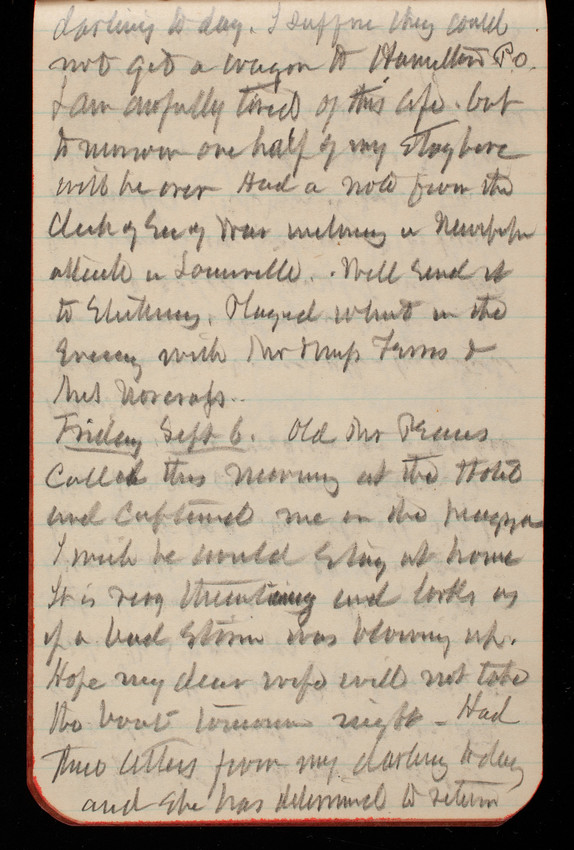 darling to day. I suppose they could
not get a wagon to Hamilton P.O.
I am awfully tired of this life. but
tomorrow one half of my stay here
will be over Had a note from the
Clerk of Secy of War enclosing a Newspaper
article in Louisville. Will send it
to Whitney. Played whist in the
Evening with Mr & Miss Ferris &
Mrs Norcross.
Friday Sept 6. Old Mr Pearces
called this morning at the Hotel
and captured me on the piazza
I wish he would stay at home
It is very threatening and looks as
if a bad storm was blowing up.
Hope my dear wife will not take
the boat tomorrow night - Had
two letters from my darling to day
and she has determined to return